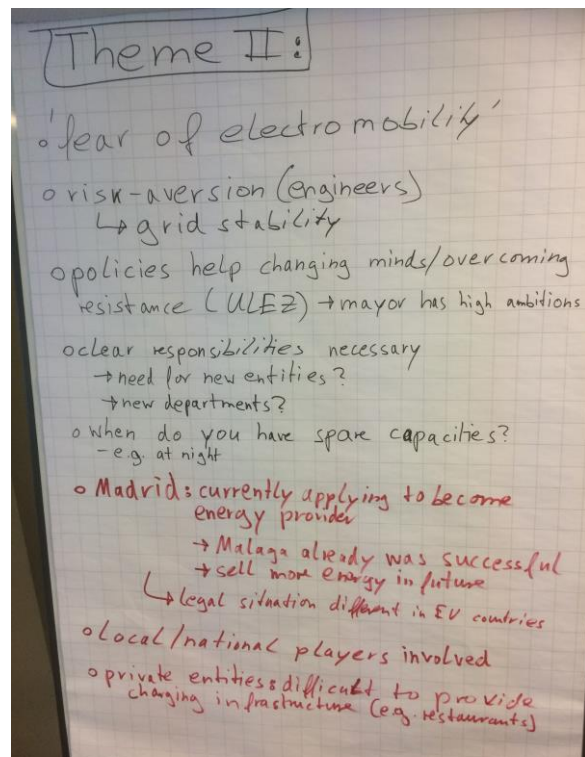 Theme II:
o 'fear of electromobility'
o risk-aversion (engineers)
↳ grid stability
o policies help changing minds/overcoming
resistance (ULEZ) → mayor has high ambitions
o clear responsibilities necessary
→ need for new entities?
→ new departments?
o When do you have spare capacities?
- e.g. at night
o Madrid: currently applying to become
energy provider
→ Malaga already was successful
→ sell more energy in future
↳ legal situation different in EU countries
o local/national players involved
o private entities: difficult to provide
charging infrastructure (e.g. restaurants)